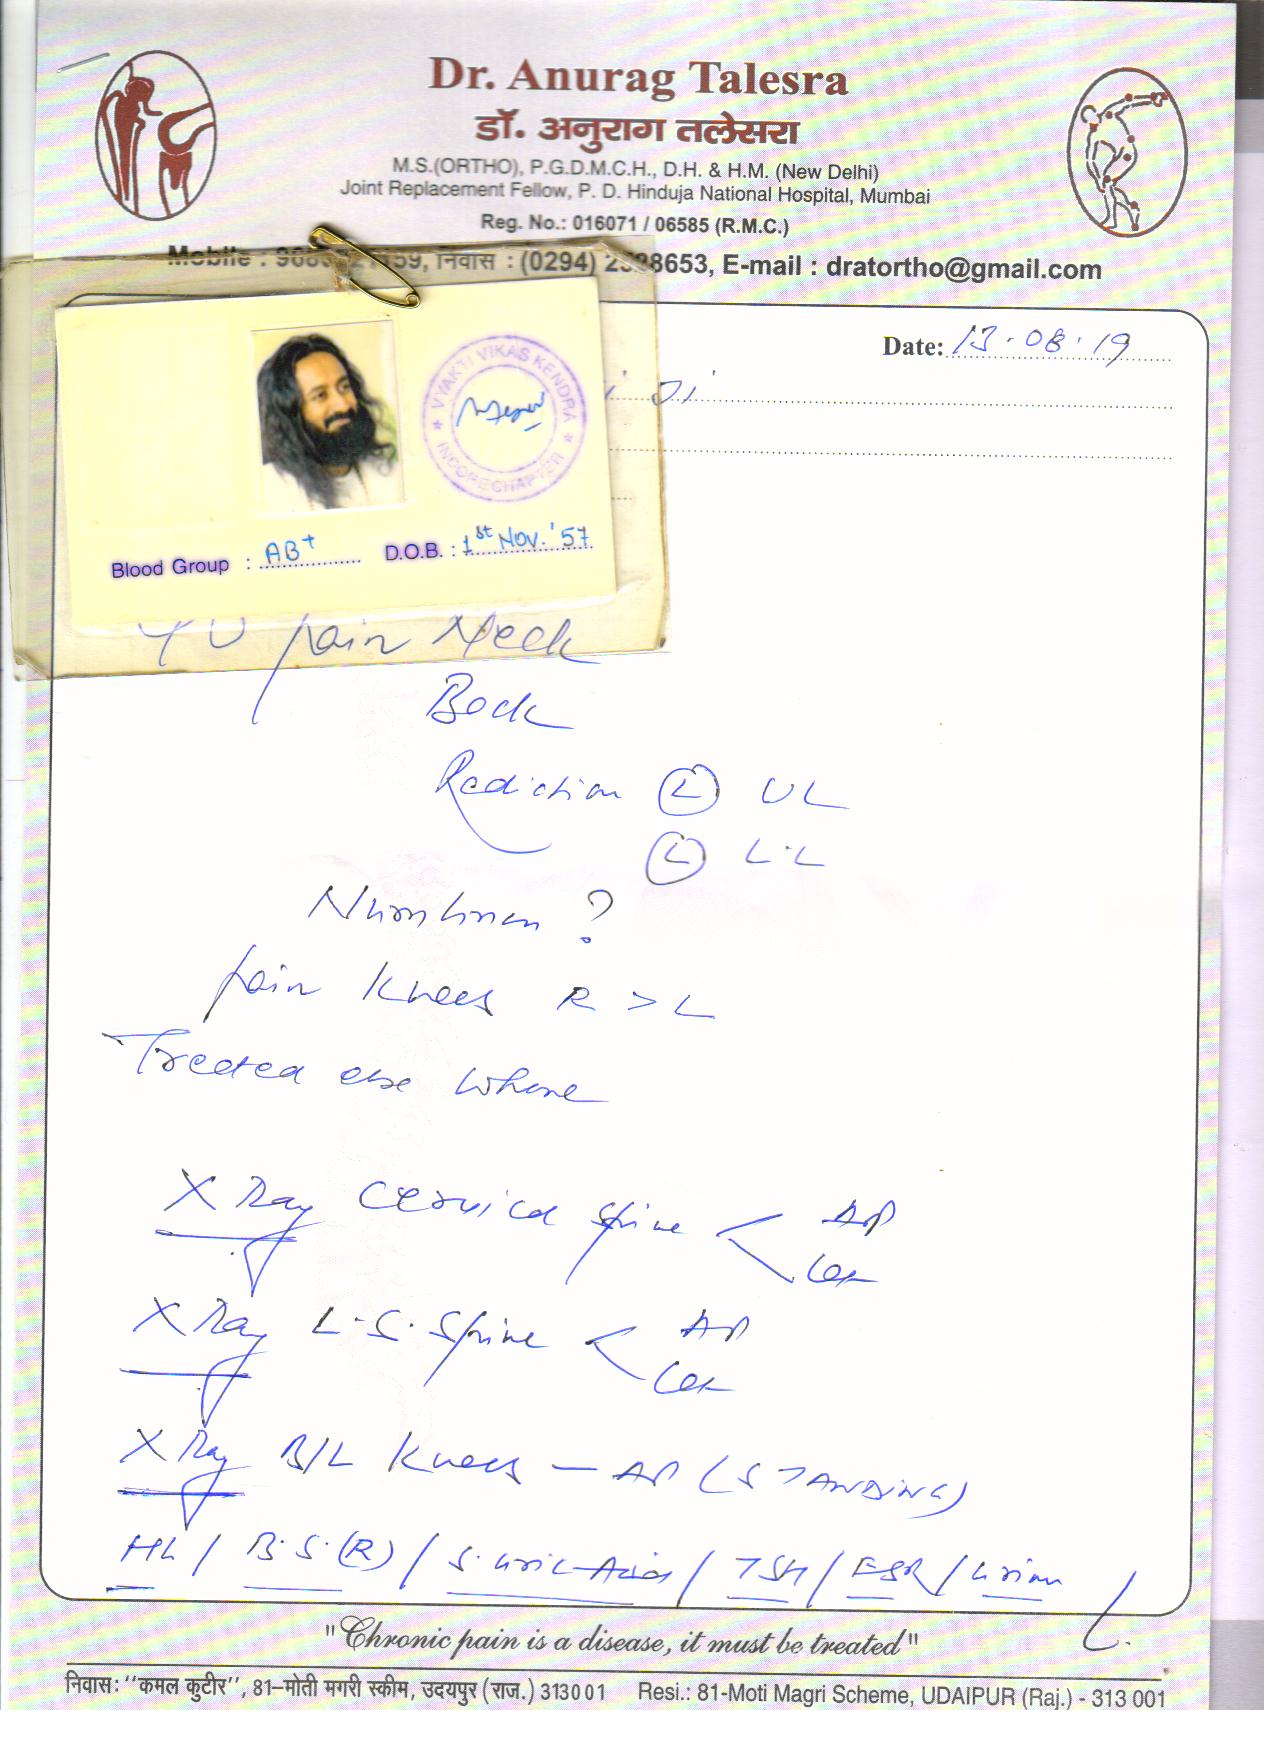 Dr. Anurag Talesra
डॉ. अनुराग तलेसरा
M.S.(ORTHO), P.G.D.M.C.H., D.H. & H.M. (New Delhi)
Joint Replacement Fellow, P. D. Hinduja National Hospital, Mumbai
Reg. No.: 016071 / 06585 (R.M.C.)
Mobile : निवास : (0294) 8653, E-mail : dratortho@gmail.com
Date: 13.08.19
VYAKTI VIKAS KENDRA
INDORE CHAPTER
Blood Group : AB+ D.O.B. : 1st Nov. '57
pain Neck
Back
Radiation (L) UL
(L) L.L
Numbness ?
pain Knees R > L
Treated else where
X Ray Cervical Spine < AP
Lat
X Ray L.S. Spine < AP
Lat
X Ray B/L Knees - AP (STANDING)
HL / B.S.(R) / S. Uric Acid / TSH / ESR / Urine
"Chronic pain is a disease, it must be treated"
निवास: ''कमल कुटीर'', 81-मोती मगरी स्कीम, उदयपुर (राज.) 313001 Resi.: 81-Moti Magri Scheme, UDAIPUR (Raj.) - 313 001